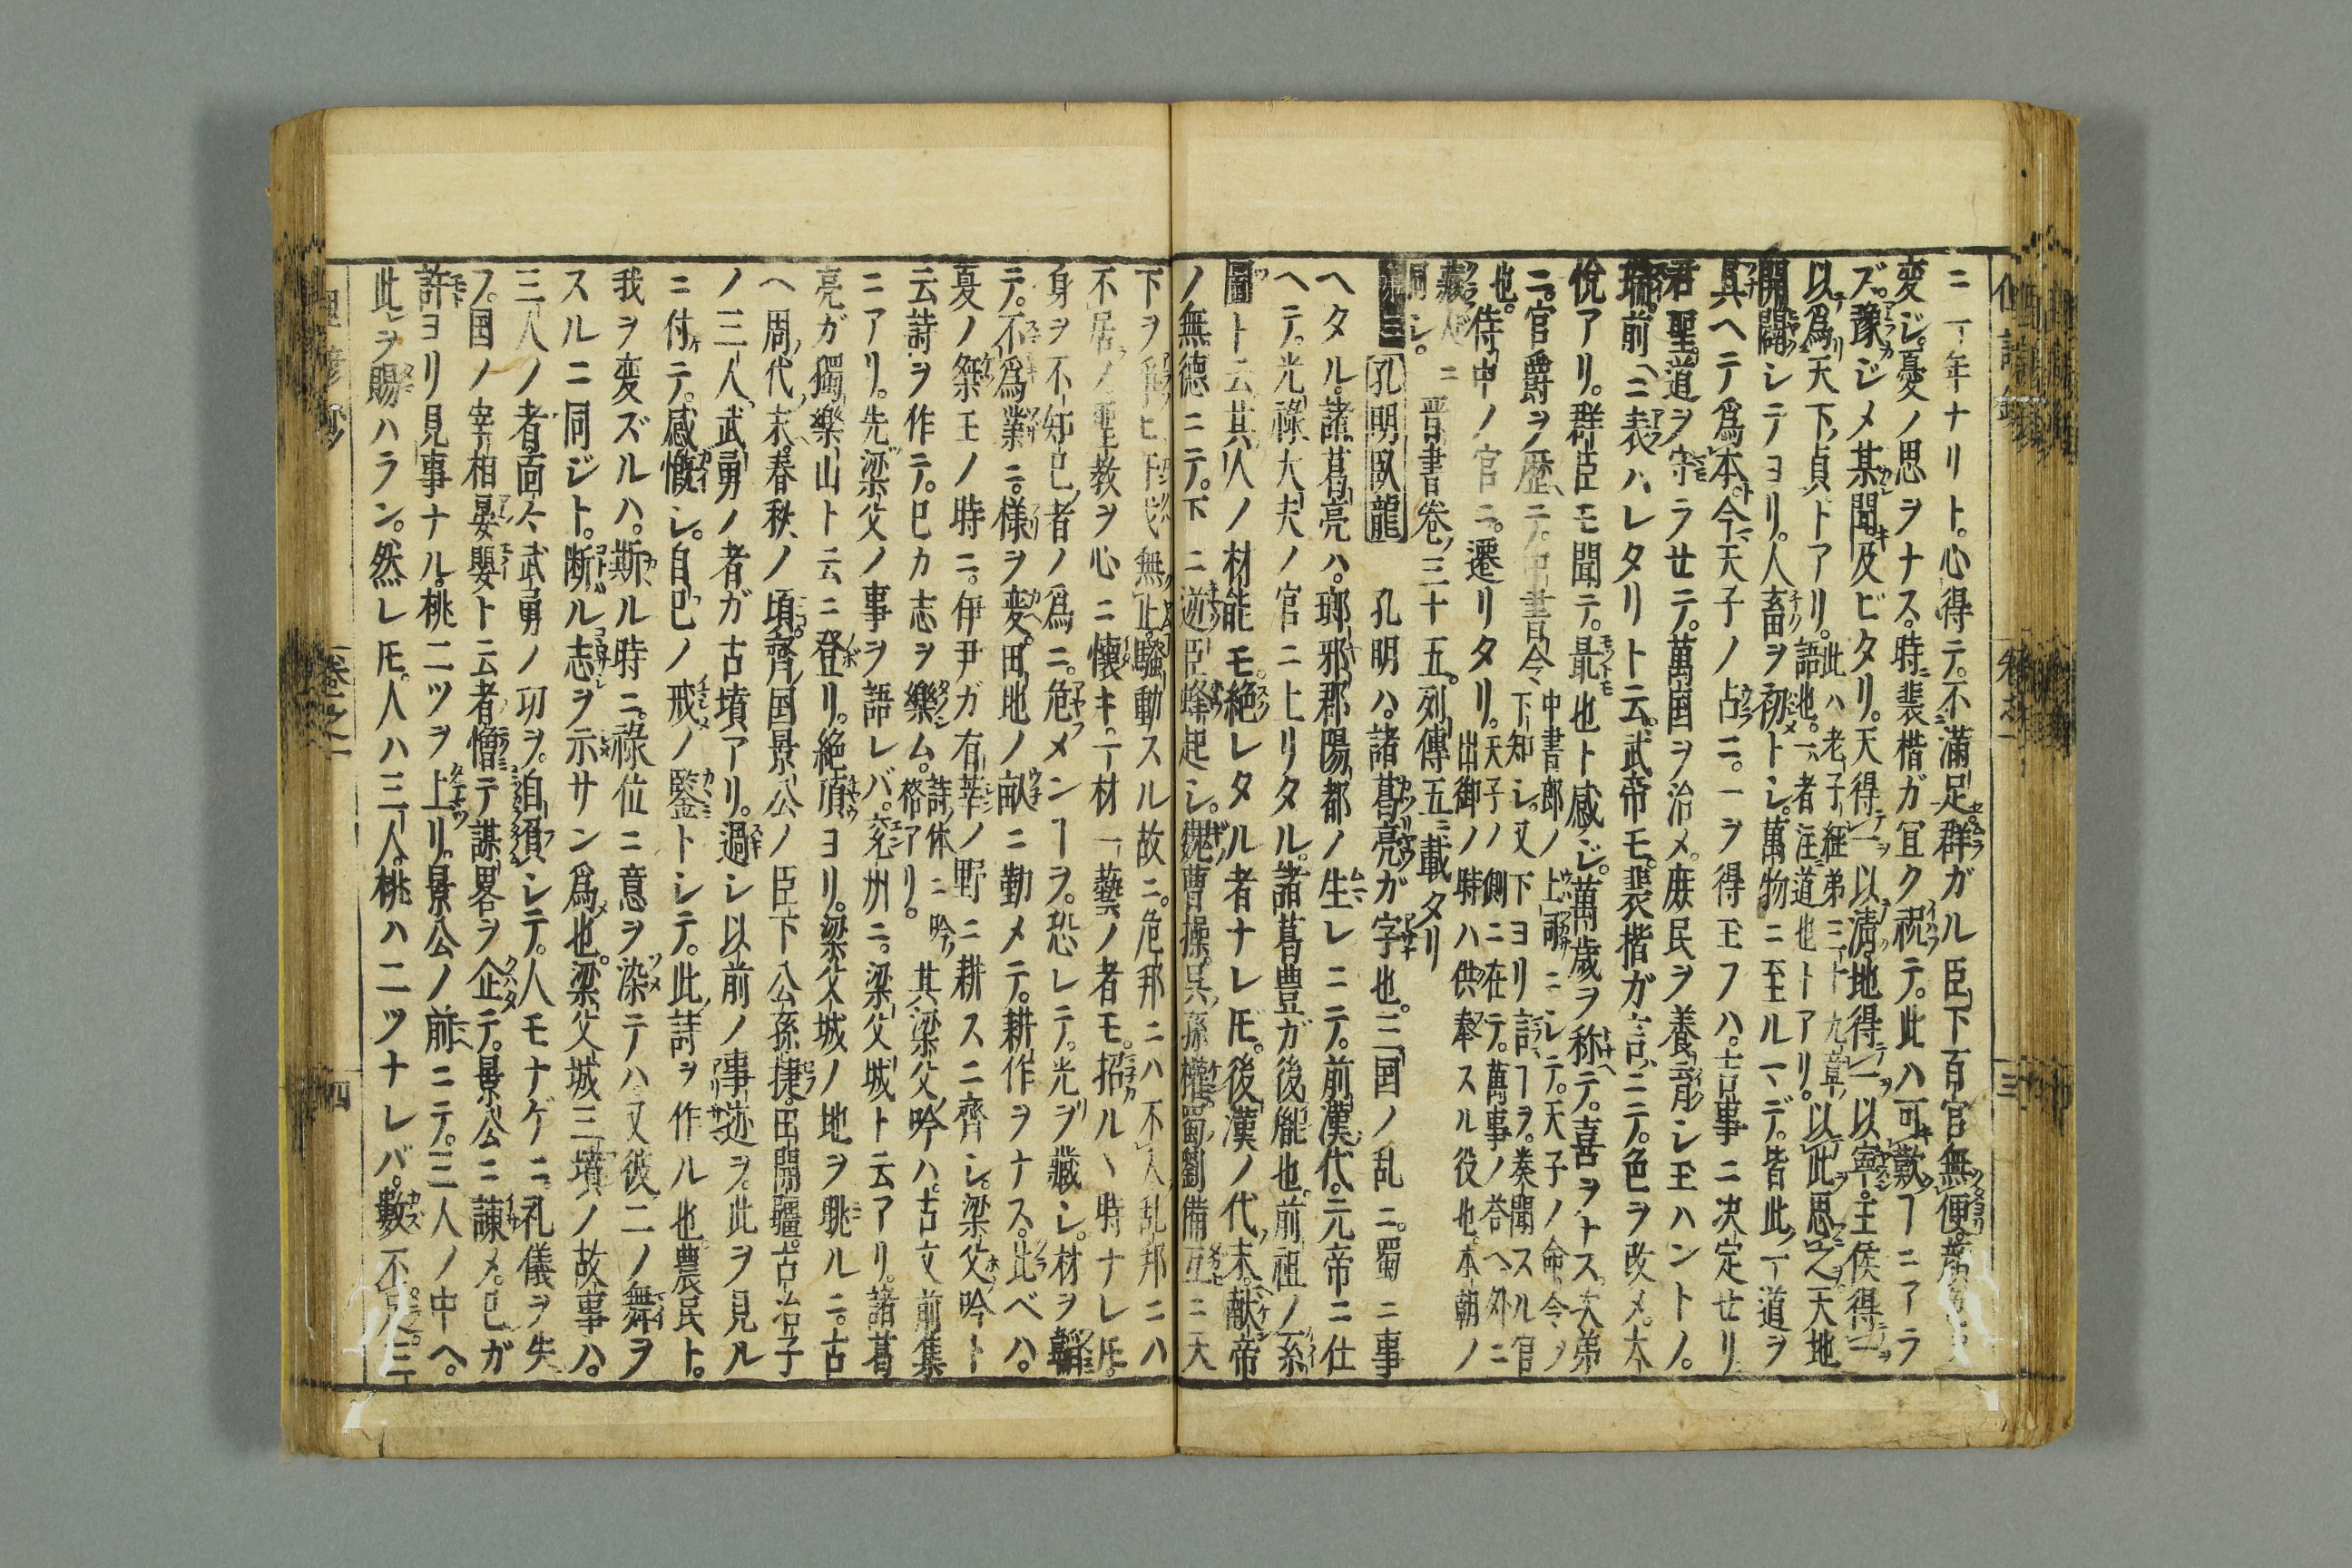 ニ一年ナリト。心得テ。不滿足。群ガル臣下百官無便。
変ジ。憂ノ思ヲナス。時裴楷ガ冝ク祝テ。此ハ可歎ヿニアラ
ズ。豫ジメ某聞及ビタリ。天得一以清。地得一以寧。主侯得一
以爲天下貞トアリ。此ハ老子經弟三十九章ノ語也。一者注道也トアリ。以此思之天地
開闢シテヨリ。人畜ヲ初トシ。萬物ニ至ルマデ。皆此一道ヲ
具ヘテ爲本。今天子ノ占ニ。一ヲ得玉フハ。吉事ニ决定せリ
君聖道ヲ守ラせテ。萬国ヲ治メ。庶民ヲ養育シ玉ハントノ。
瑞。前ニ表ハレタリト云。武帝モ。裴楷ガ言ニテ。色ヲ改メ。大
悅アリ。群臣モ聞テ。最也ト感ジ。萬歳ヲ称テ。喜ヲナス。次弟
ニ。官爵ヲ歴テ。中書令、中書郎ノ上司ニシテ。天子ノ命令ノ下知シ。又下ヨリ言ヿヲ。奏聞スル官也。
侍中ノ官ニ。遷リタリ。天子ノ側ニ在テ。萬事ノ答ヘ、外ニ出御ノ時ハ供奉スル役也。本朝ノ藏人
同シ。ニ晋書卷三十五。列傳五ニ載タリ
孔明臥龍 孔明ハ。諸葛亮ガ字也。三国ノ乱ニ。蜀ニ事
ヘタル。諸葛亮ハ。瑯邪郡陽都ノ生レニテ。前漢代。元帝ニ仕
ヘテ。光祿大夫ノ官ニ上リタル。諸葛豊ガ後胤也。前祖ノ系
圖ト云其人ノ材能モ。絶レタル者ナレ𪜈。後漢ノ代末。献帝
ノ無德ニテ。下ニ逆臣蜂起シ。魏曹操。呉孫權。蜀劉備互ニ天
下ヲ無止騷動スル故ニ。危邦ニハ不入乱邦ニハ
不居ノ聖教ヲ心ニ懐キ。一材一藝ノ者モ。招ルヽ時ナレ𪜈。
身ヲ不知己者ノ爲ニ。危メンヿヲ。恐レテ。光ヲ藏シ。材ヲ韜
テ。不爲業ニ。様ヲ変。田地ノ畝ニ勤メテ。耕作ヲナス。比ベハ。
夏ノ桀王ノ時ニ。伊尹ガ有莘ノ野ニ耕スニ齊シ。梁父吟ト
云詩ヲ作テ。己カ志ヲ樂ム。詩ノ体ニ吟格アリ。其梁父吟ハ。古文前集
ニアリ。先梁父ノ事ヲ語レバ。兖州ニ。梁父城ト云アリ。諸葛
亮ガ獨樂山ト云ニ登リ。絶頂ヨリ。梁父城ノ地ヲ眺ルニ。古
ヘ周代末。春秋ノ頃。齊国景公ノ臣下公孫捷。田開疆。古冶子
ノ三人武勇ノ者ガ古墳アリ。過シ以前ノ事迹ヲ。此ヲ見ル
ニ付テ。感慨シ。自己ノ戒ノ鑒トシテ。此詩ヲ作ル也。農民ト。
我ヲ変ズルハ。斯ル時ニ。祿位ニ意ヲ染テハ又彼二ノ舞ヲ
スルニ同ジト。断ル志ヲ示サン爲也。梁父城三墳ノ故事ハ。
三人ノ者。面々武勇ノ功ヲ。自須シテ。人モナゲニ。礼儀ヲ失
フ。国ノ宰相晏嬰ト云者憎テ謀畧ヲ企テ。景公ニ諫メ。己ガ
許ヨリ見事ナル。桃二ツヲ上リ。景公ノ前ニテ。三人ノ中ヘ。
此ヲ賜ハラン。然レ𪜈。人ハ三人。桃ハ二ツナレバ。數不足。三
卷之一
四